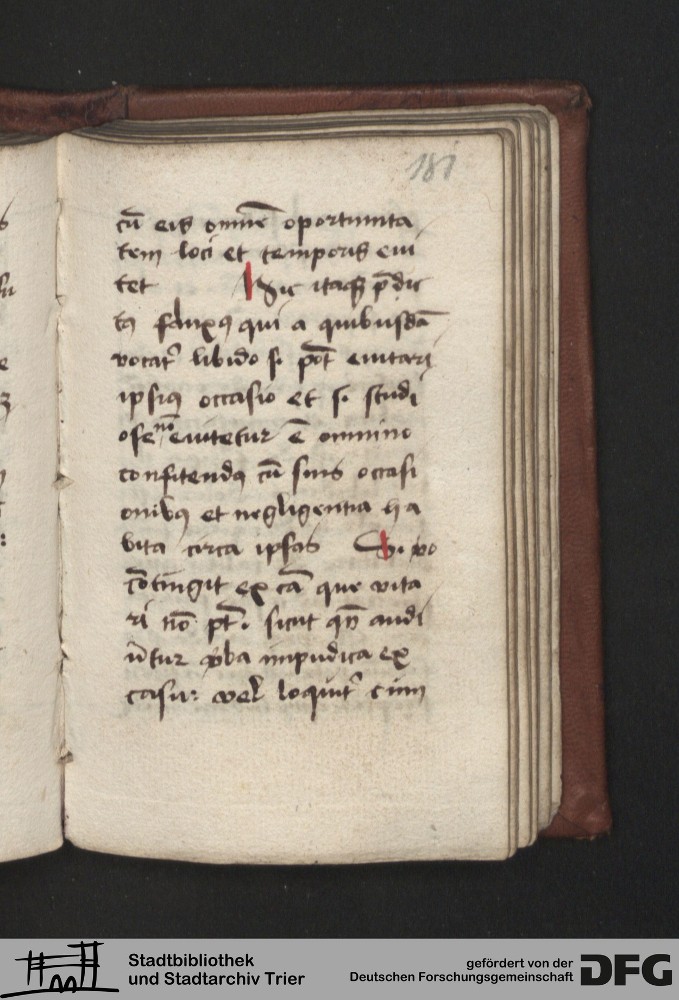 181
cū eis omnē oportunita
tem loci et temporis eui
tet Hic itaq; p̄dic
tꝯ fluxꝯ qui a quibusdā
vocat᷑ libido si pōt euitari
ipsiꝯ occasio et si studi
ose nō euitetur ē omnino
confitendꝯ cū suis occasi
onibꝯ et negligentia ha
bita circa ipsas Si vo
cōtingit ex cā que vita
ri nō pt̄. sicut qn̄ audi
ūtur v̓ba impudica ex
casu: vel loquit᷑ cum
Stadtbibliothek
und Stadtarchiv Trier
gefördert von der
Deutschen Forschungsgemeinschaft
DFG